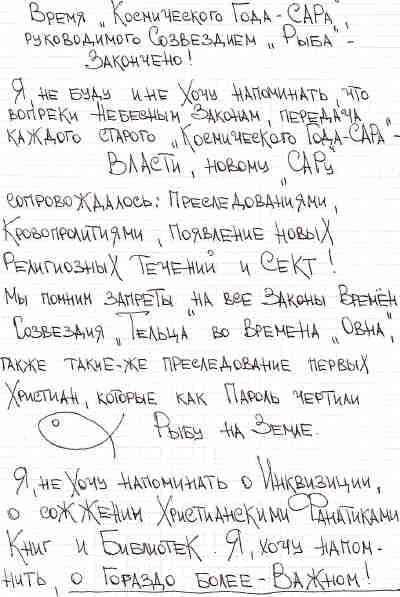 Время „Космического Года-САРА”
руководимого Созвездием „Рыба”-
Закончено!
Я, не буду и не хочу напоминать, что
вопреки небесным Законам, передача
каждого старого „Космического Года-САРА”-
Власти, новому „САРу”
сопровождалось: Преследованиями,
Кровопролитиями, появление новых
Религиозных Течений и Сект!
Мы помним запреты „на все Законы Времён
Созвездия „Тельца” во Времена „Овна”,
также такие-же преследование первых
Христиан, которые как Пароль чертили
Рыбу на Земле.
Я, не хочу напоминать о Инквизиции,
о сожжении Христианскими Фанатиками
Книг и Библиотек. Я, хочу напом-
нить, о гораздо более-Важном!